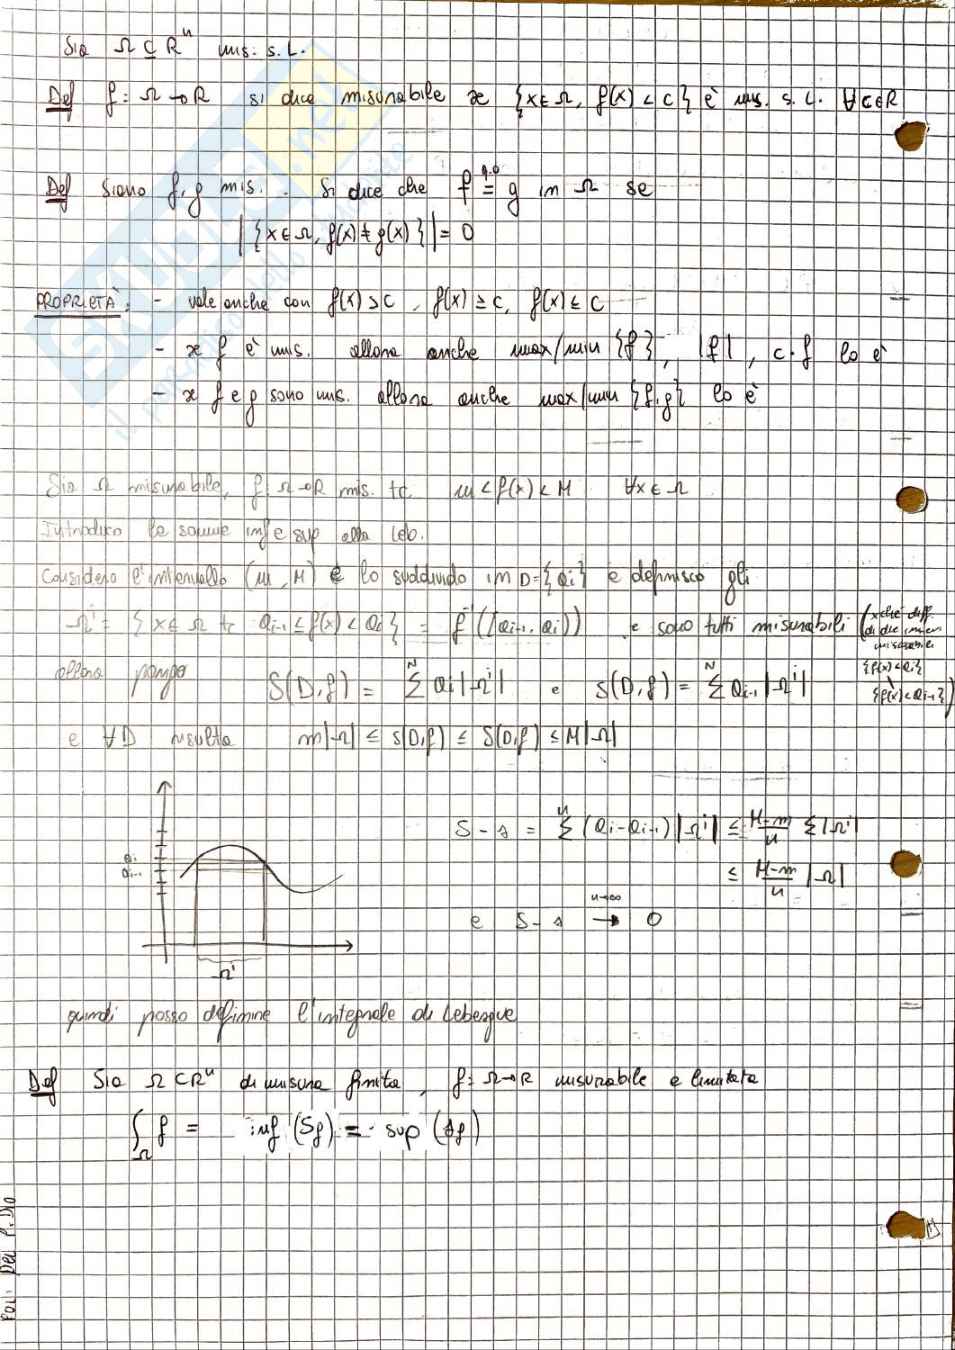 Sia Ω ⊆ Rⁿ mis. s. L.
Def f: Ω→R si dice misurabile se {x∈Ω, f(x) < c} è mis. s. L. ∀c∈R
Def Siano f,g mis. . Si dice che f =^{q.o} g in Ω se
|{x∈Ω, f(x)≠g(x)}| = 0
PROPRIETÀ: - vale anche con f(x)>c, f(x)≥c, f(x)≤c
- se f è mis. allora anche max/min {f}, |f|, c·f lo è
- se f e g sono mis. allora anche max/min {f,g} lo è
Sia Ω misurabile, f: Ω→R mis. tc m<f(x)<M ∀x∈Ω
Introduco le somme inf e sup alla Leb.
Considero l'intervallo (m, M) e lo suddivido in D={ai} e definisco gli
Ωⁱ = {x∈Ω tc ai-1 ≤ f(x) < ai} = f⁻¹([ai-1, ai)) e sono tutti misurabili (xché diff. di due insiemi misurabili {f(x)<ai} \ {f(x)<ai-1})
allora pongo S(D,f) = Σᴺ ai|Ωⁱ| e s(D,f) = Σᴺ ai-1|Ωⁱ|
e ∀D risulta m|Ω| ≤ s(D,f) ≤ S(D,f) ≤ M|Ω|
S - s = Σⁿ (ai-ai-1)|Ωⁱ| ≤ M-m/n Σ|Ωⁱ|
≤ M-m/n |Ω|
ai
ai-1
e S - s →^{n→∞} 0
Ωⁱ
quindi posso definire l'integrale di Lebesgue
Def Sia Ω⊂Rⁿ di misura finita, f: Ω→R misurabile e limitata
∫_Ω f = inf (Sf) = sup (sf)